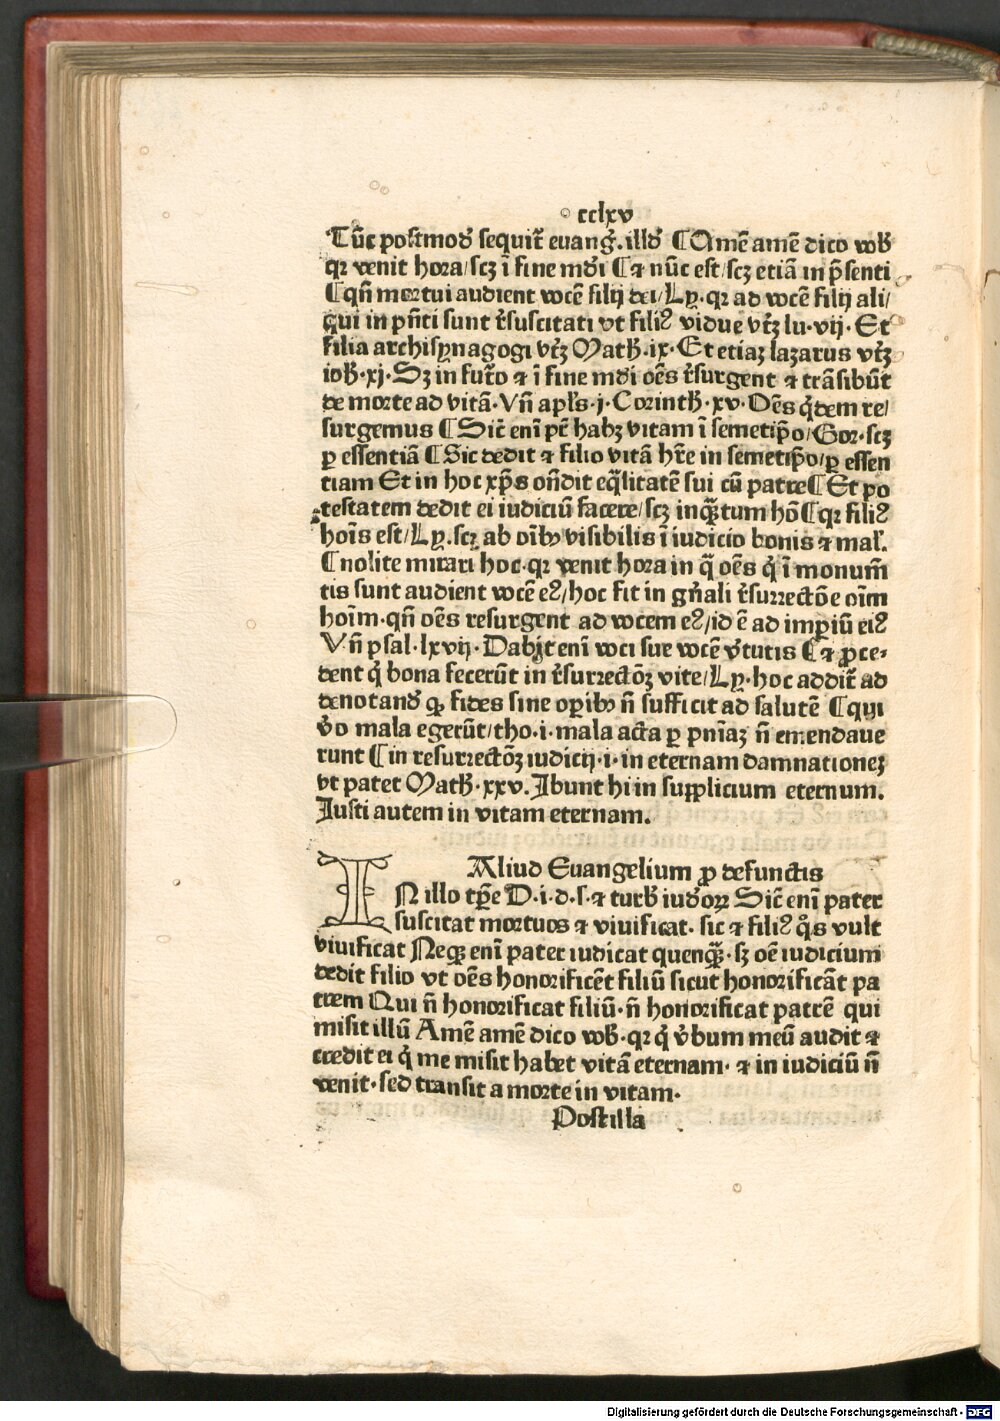 cclxv
Tūc postmoď sequit̄ euanǵ. illď ¶ Amē amē dico vob̄
qꝛ venit hora/scꝫ ī fine mďi ¶ ⁊ nūc est/scꝫ etiā in p̄senti
¶ qn̄ mortui audient vocē filij dei/Ly. qꝛ ad vocē filij ali/
qui in pn̄ti sunt r̄suscitati vt filiꝰ vidue vt̄ꝫ lu. vij. Et
filia archisynagogi vt̄ꝫ Math̄. ix. Et etiaꝫ lazarus vt̄ꝫ
ioh̄. xj. Sꝫ in futro ⁊ ī fine mďi oēs r̄surgent ⁊ trāsibūt
de morte ad vitā. Vn̄ apl̄s. j. Corinth̄. xv. Oēs q̇dem re/
surgemus ¶ Sic̄ enī pr̄ habꝫ vitam ī semetip̄o/Gor. scꝫ
ꝑ essentiā ¶ Sic dedit ⁊ filio vitā hr̄e in semetip̄o/ꝑ essen
tiam Et in hoc xp̄s on̄dit eq̄litatē sui cū patre ¶ Et po
testatem dedit ei iudiciū facere/scꝫ inqꝫ̄tum hō ¶ qꝛ filiꝰ
hoīs est/Ly. scꝫ ab oībꝰ visibilis ī iudicio bonis ⁊ mal̄.
¶ nolite mirari hoc. qꝛ venit hora in q̄ oēs q̇ ī monum̄
tis sunt audient vocē eꝰ/hoc fit in gn̄ali r̄surrectōe oīm
hoīm. qn̄ oēs resurgent ad vocem eꝰ/id ē ad imꝑiū eiꝰ
Vn̄ psal. lxvij. Dabit enī voci sue vocē v̄tutis ¶ ⁊ ꝓce-
dent q̇ bona fecerūt in r̄surrectōꝫ vite/Ly. hoc addit̄ ad
denotanď ꝙ fides sine oꝑibꝰ n̄ sufficit ad salutē ¶ qui
v̄o mala egerūt/tho. i. mala acta ꝑ pnīaꝫ n̄ emendaue
runt ¶ in resurrectōꝫ iudicij. i. in eternam damnationeꝫ
vt patet Math̄. xxv. Ibunt hi in supplicium eternum.
Iusti autem in vitam eternam.
Aliud Euangelium ꝓ defunctis
IN illo tꝑe D. i. d. s. ⁊ turb̄ iuďoꝝ Sic̄ enī pater
suscitat mortuos ⁊ viuificat. sic ⁊ filiꝰ q̇s vult
viuificat Neqꝫ enī pater iudicat quenqꝫ̄. sꝫ oē iudicium
dedit filio vt oēs honorificēt filiū sicut honorificāt pa
trem Qui n̄ honorificat filiū. n̄ honorificat patrē qui
misit illū Amē amē dico vob̄. qꝛ q̇ v̄bum meū audit ⁊
credit ei q̇ me misit habet vitā eternam. ⁊ in iudiciū n̄
venit. sed transit a morte in vitam.
Postilla
Digitalisierung gefördert durch die Deutsche Forschungsgemeinschaft - DFG